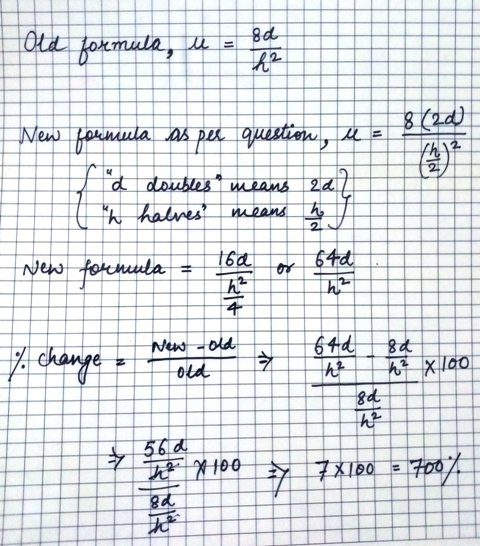 Old formula, u = 8d/h²
New formula as per question, u = 8(2d)/(h/2)²
{"d doubles" means 2d}
{"h halves" means h/2}
New formula = 16d/(h²/4) or 64d/h²
% change = New - Old/Old ⇒ (64d/h² - 8d/h²)/(8d/h²) × 100
⇒ (56d/h²)/(8d/h²) × 100 ⇒ 7 × 100 = 700%